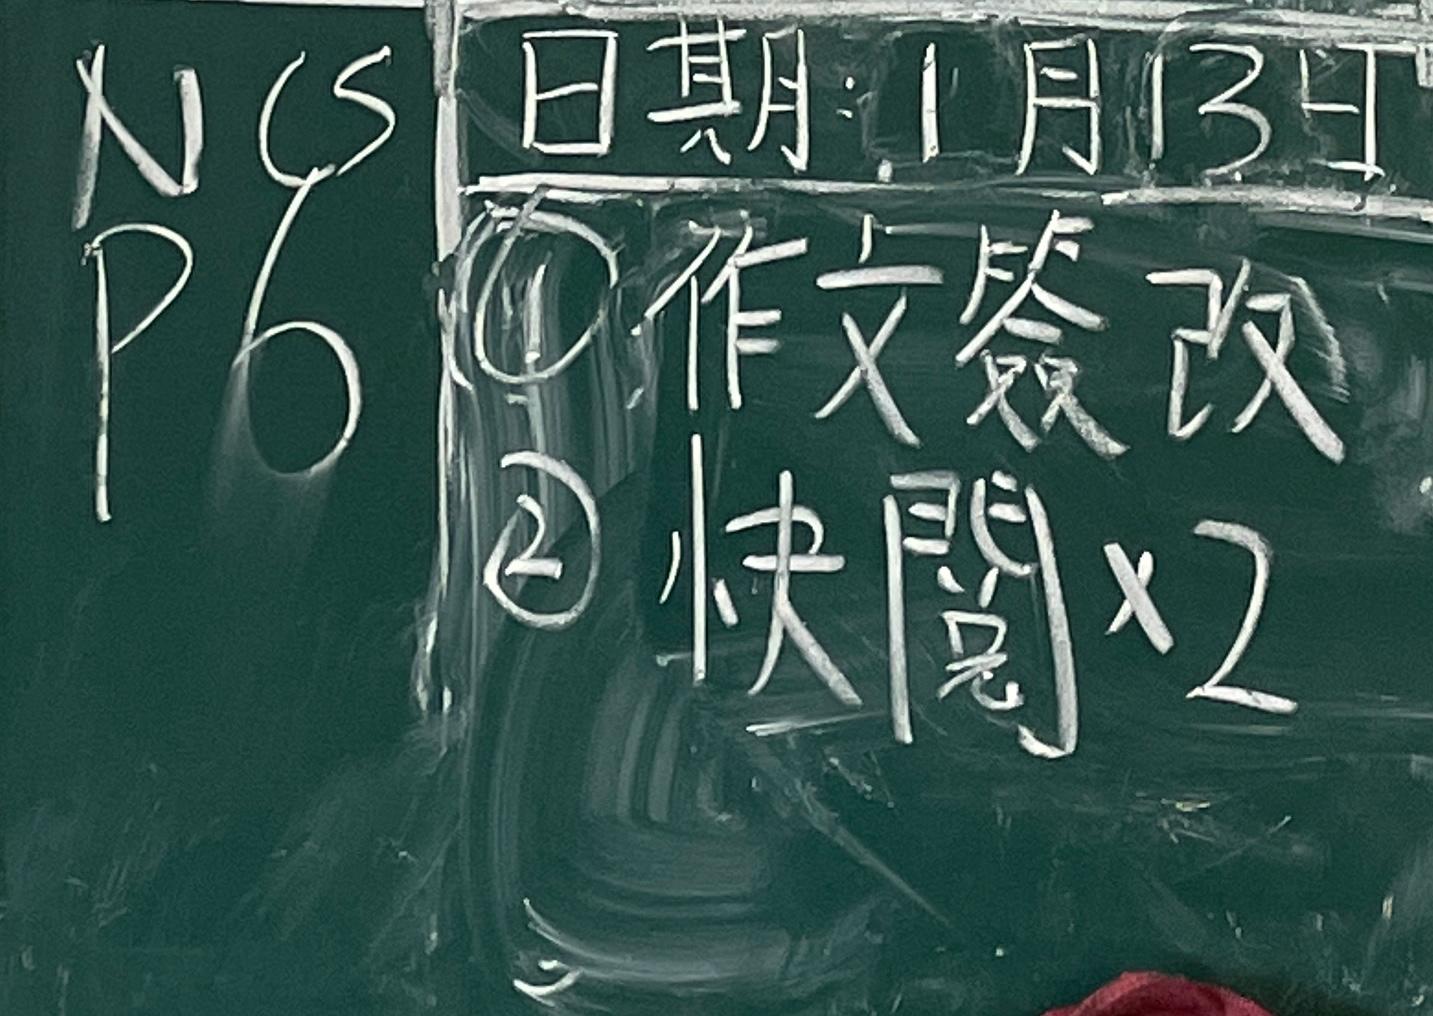 NCS
P6
日期:1月13日
①作文簽改
②快閱×2